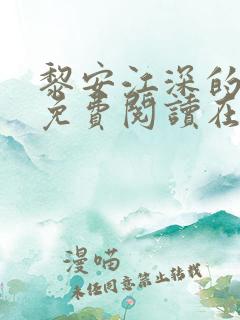 黎安江深的
免費閱讀在
漫喵
未经同意禁止转载